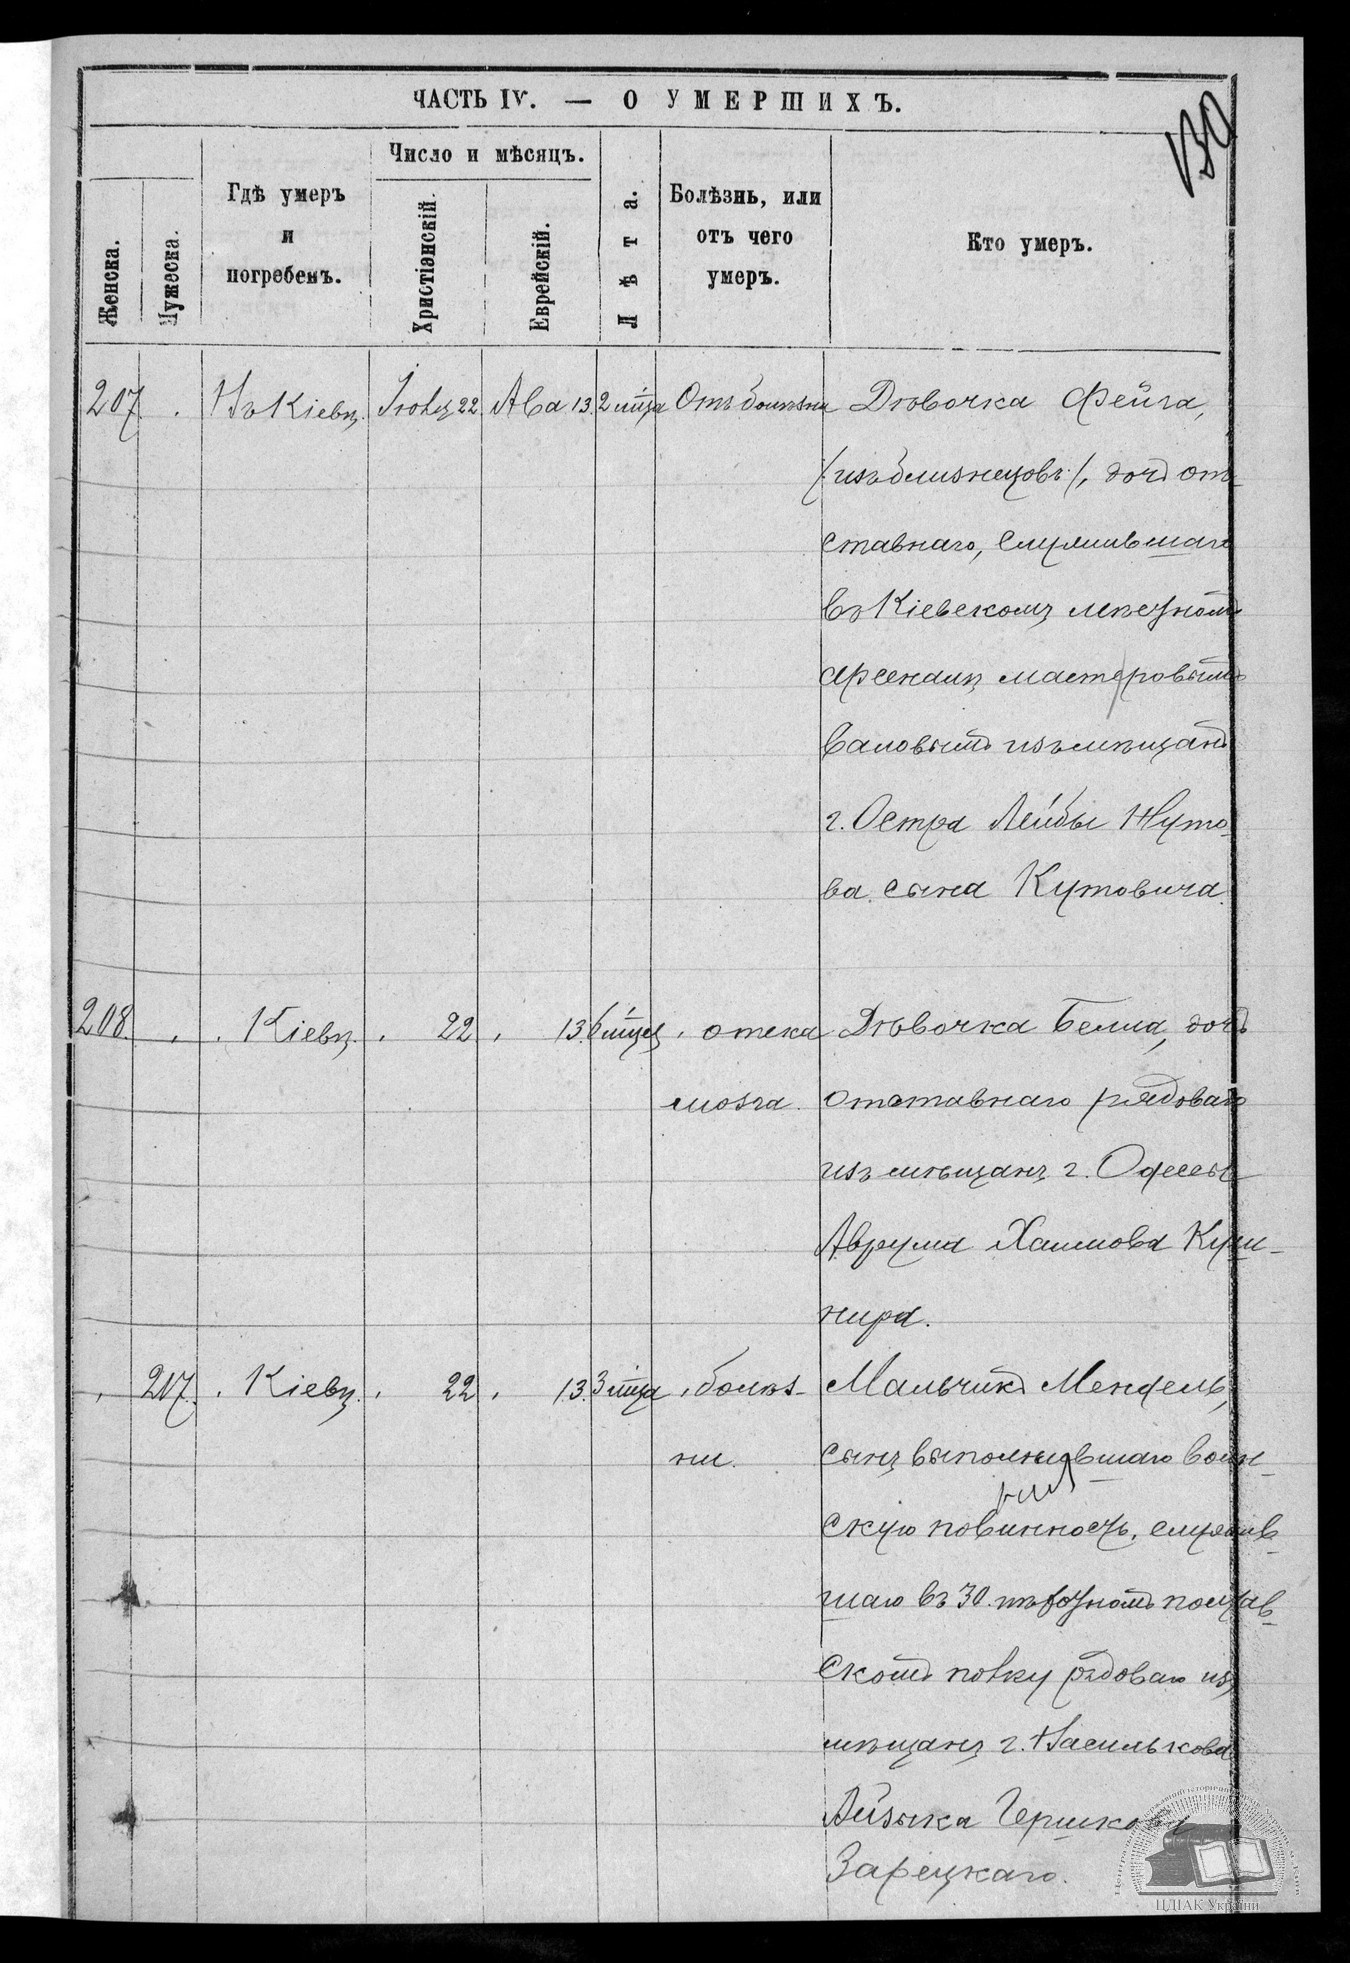 ЧАСТЬ IV. — О УМЕРШИХЪ.
130
Женска.
Мужеска.
Гдѣ умеръ
и
погребенъ.
Число и мѣсяцъ.
Христіанскій.
Еврейскій.
Лѣта.
Болѣзнь, или
отъ чего
умеръ.
Кто умеръ.
207 . Въ Кіевѣ. Іюля 22 Ава 13. 2 мѣца Отъ болѣзни Дѣвочка Фейга,
/:изъ близнецовъ:/, дочь от-
ставнаго, служившаго
въ Кіевскомъ мѣстномъ
арсеналѣ мастеровымъ
изъ мѣщанъ
г. Остра Лейбы Нуто-
ва сына Кутовича.
208. . . Кіевѣ. . 22 . 13. 6 мѣцев . отека Дѣвочка Белла, дочь
мозга. отставнаго рядоваго
изъ мѣщанъ г. Одессы
Аврума Хаимова Куш-
нира.
. 217. . Кіевѣ. . 22 . 13. 3 мѣца . болѣз- Мальчикъ Мендель,
ни. сынъ выполнившаго воин-
скую повинность, служив-
шаго въ 30. пѣхотномъ полтав-
скомъ полку рядоваго изъ
мѣщанъ г. Василькова
Айзыка Гершкова
Зарецкаго.
ЦДІАК України